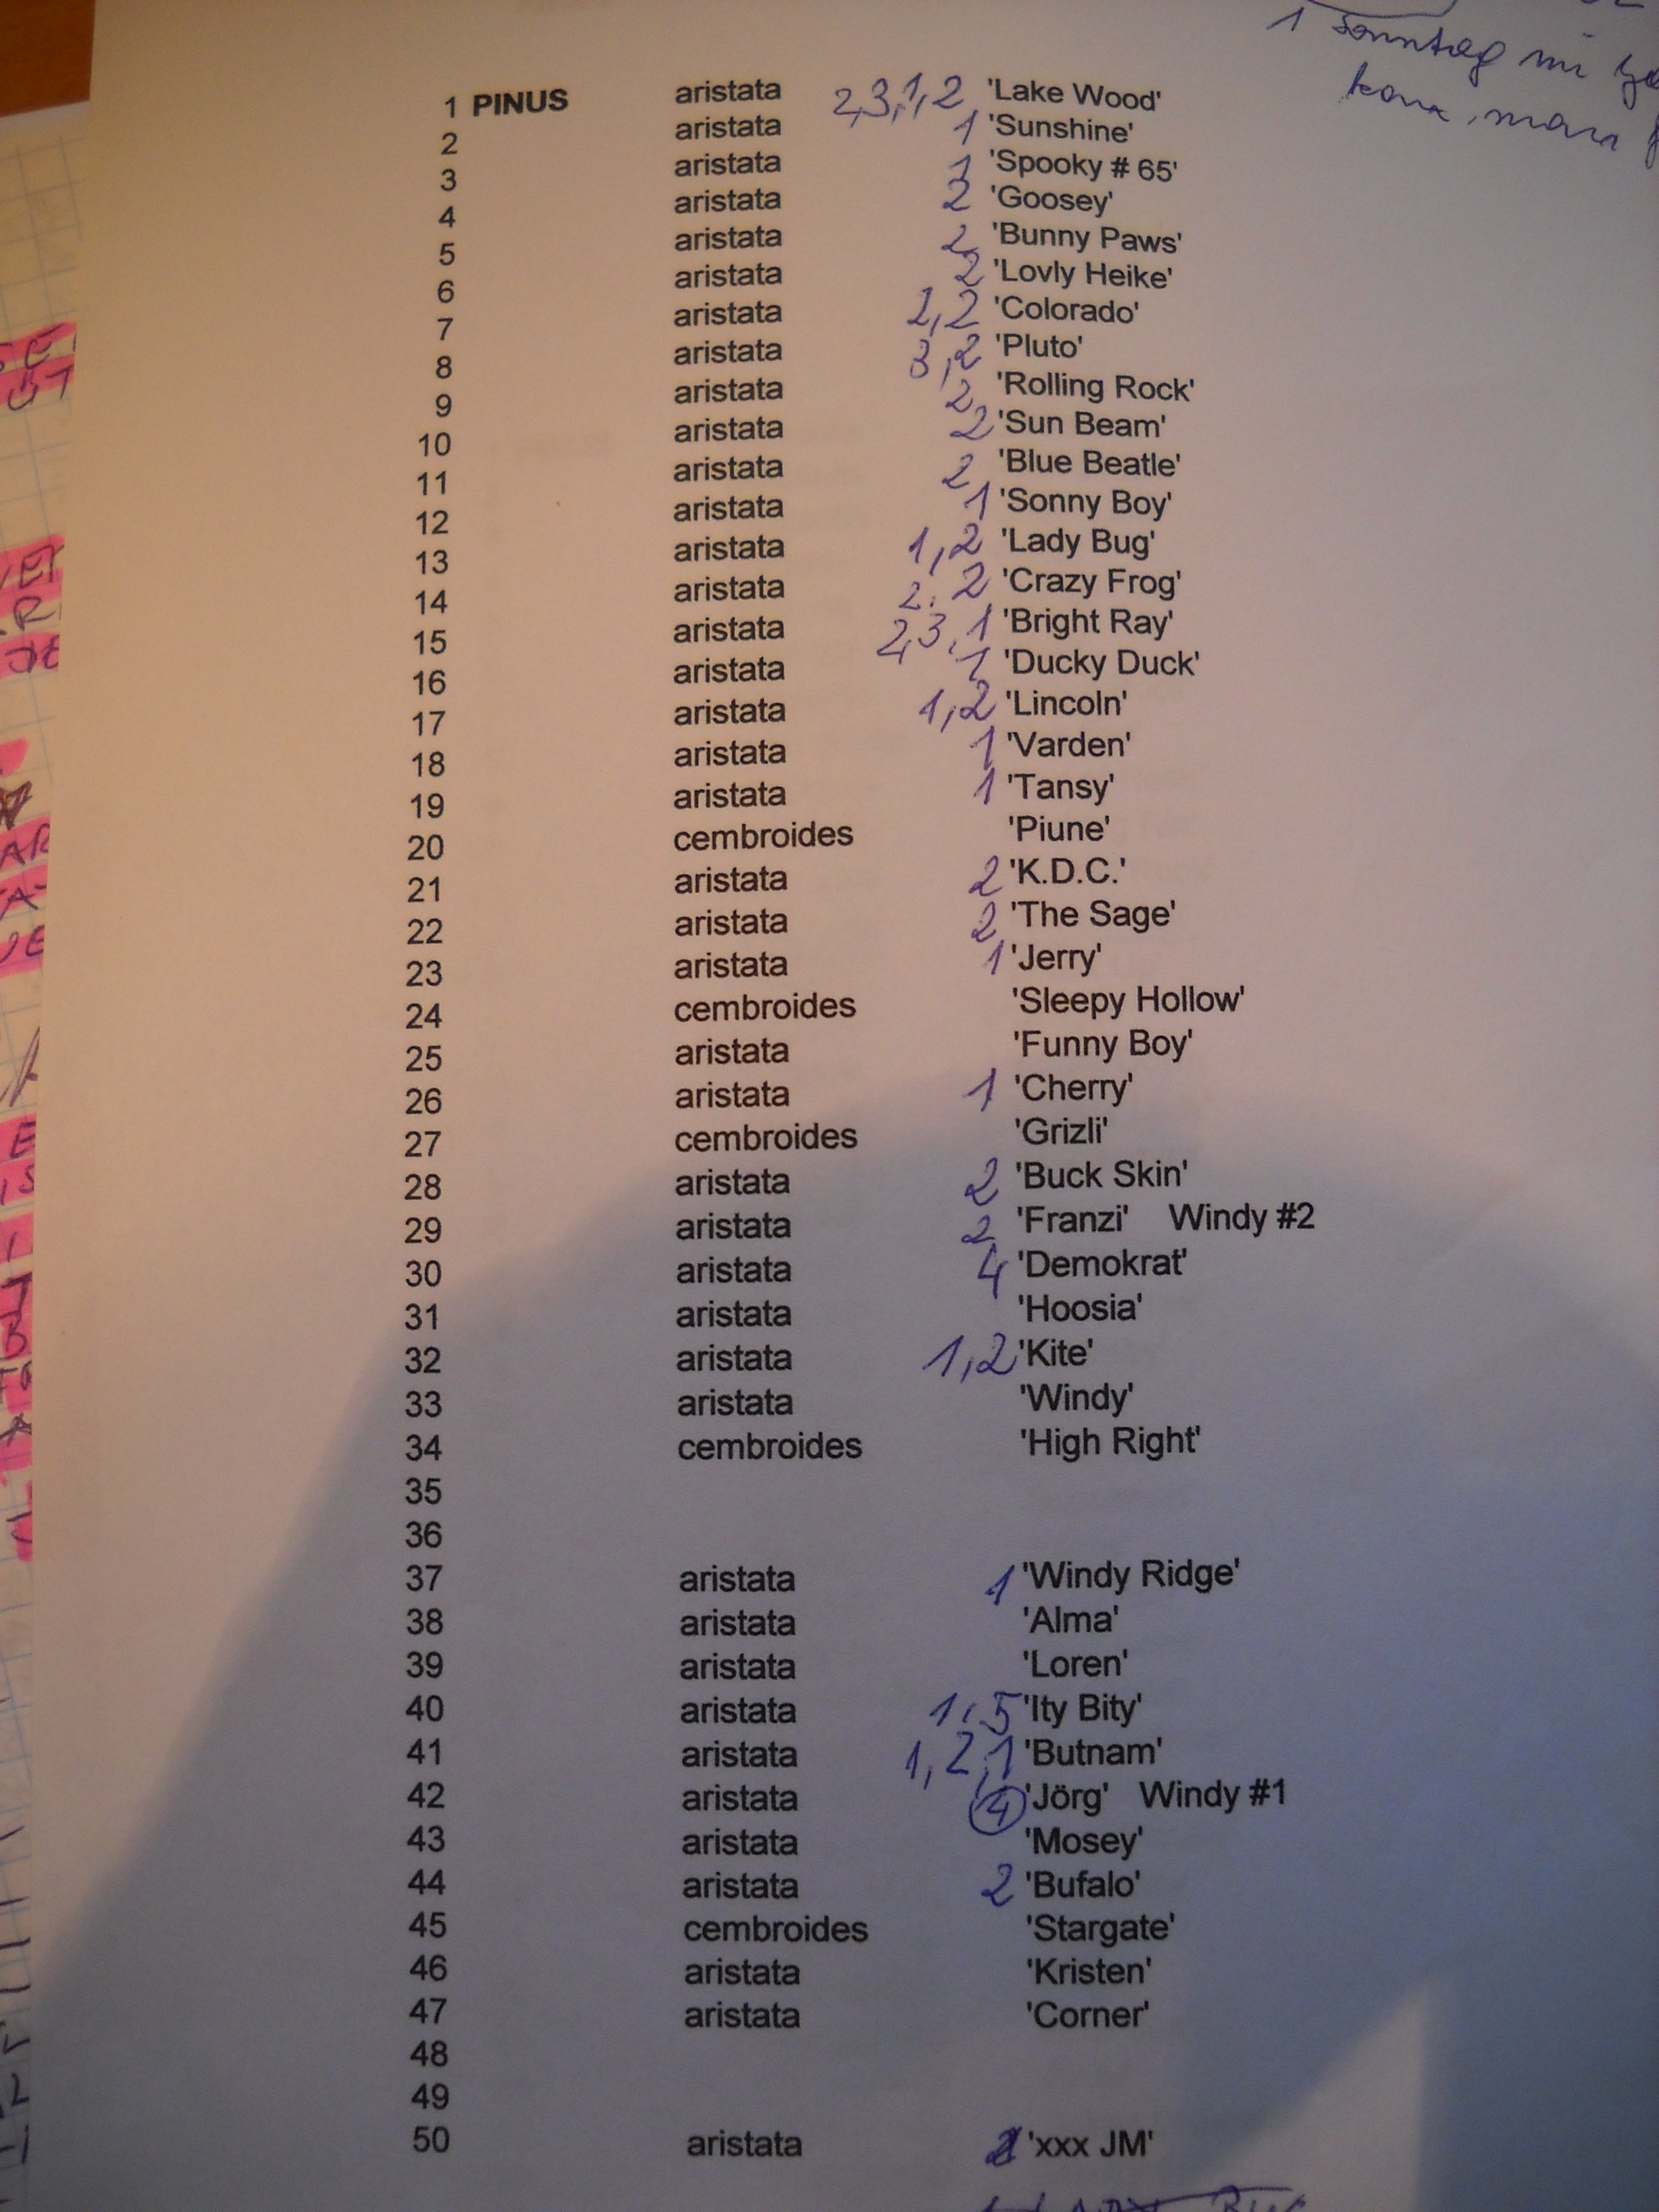 1 Sonntag mi
1 PINUS aristata 2,3,1,2 'Lake Wood'
2 aristata 1 'Sunshine'
3 aristata 1 'Spooky # 65'
4 aristata 2 'Goosey'
5 aristata 2 'Bunny Paws'
6 aristata 2 'Lovly Heike'
7 aristata 1,2 'Colorado'
8 aristata 3,2 'Pluto'
9 aristata 2 'Rolling Rock'
10 aristata 2 'Sun Beam'
11 aristata 2 'Blue Beatle'
12 aristata 1 'Sonny Boy'
13 aristata 1,2 'Lady Bug'
14 aristata 2, 2 'Crazy Frog'
15 aristata 2,3,1 'Bright Ray'
16 aristata 1 'Ducky Duck'
17 aristata 1,2 'Lincoln'
18 aristata 1 'Varden'
19 aristata 1 'Tansy'
20 cembroides 'Piune'
21 aristata 2 'K.D.C.'
22 aristata 2 'The Sage'
23 aristata 1 'Jerry'
24 cembroides 'Sleepy Hollow'
25 aristata 'Funny Boy'
26 aristata 1 'Cherry'
27 cembroides 'Grizli'
28 aristata 2 'Buck Skin'
29 aristata 2 'Franzi' Windy #2
30 aristata 4 'Demokrat'
31 aristata 'Hoosia'
32 aristata 1,2 'Kite'
33 aristata 'Windy'
34 cembroides 'High Right'
35
36
37 aristata 1 'Windy Ridge'
38 aristata 'Alma'
39 aristata 'Loren'
40 aristata 1,5 'Ity Bity'
41 aristata 1,2,1 'Butnam'
42 aristata 4 'Jörg' Windy #1
43 aristata 'Mosey'
44 aristata 2 'Bufalo'
45 cembroides 'Stargate'
46 aristata 'Kristen'
47 aristata 'Corner'
48
49
50 aristata 'xxx JM'